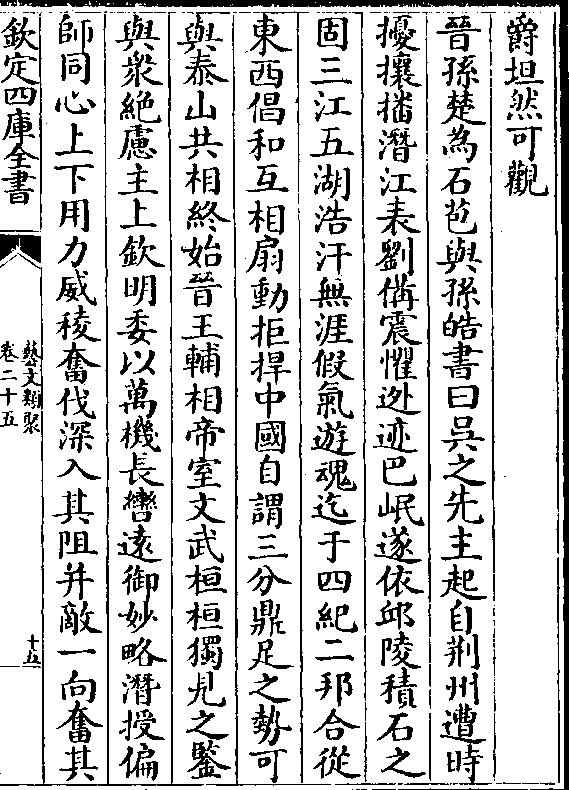 爵坦然可觀
晉孫楚為石苞與孫皓書曰吳之先主起自荆州遭時
擾攘播潛江表劉備震懼迯迹巴岷遂依邱陵積石之
固三江五湖浩汗無涯假氣遊魂迄于四紀二邦合從
東西倡和互相扇動拒捍中國自謂三分鼎足之勢可
與泰山共相終始晉王輔相帝室文武桓桓獨見之鑒
與衆絶慮主上欽明委以萬機長轡遠御妙略潛授偏
師同心上下用力威稜奮伐深入其阻并敵一向奮其
欽定四庫全書
藝文類聚
卷二十五
十五